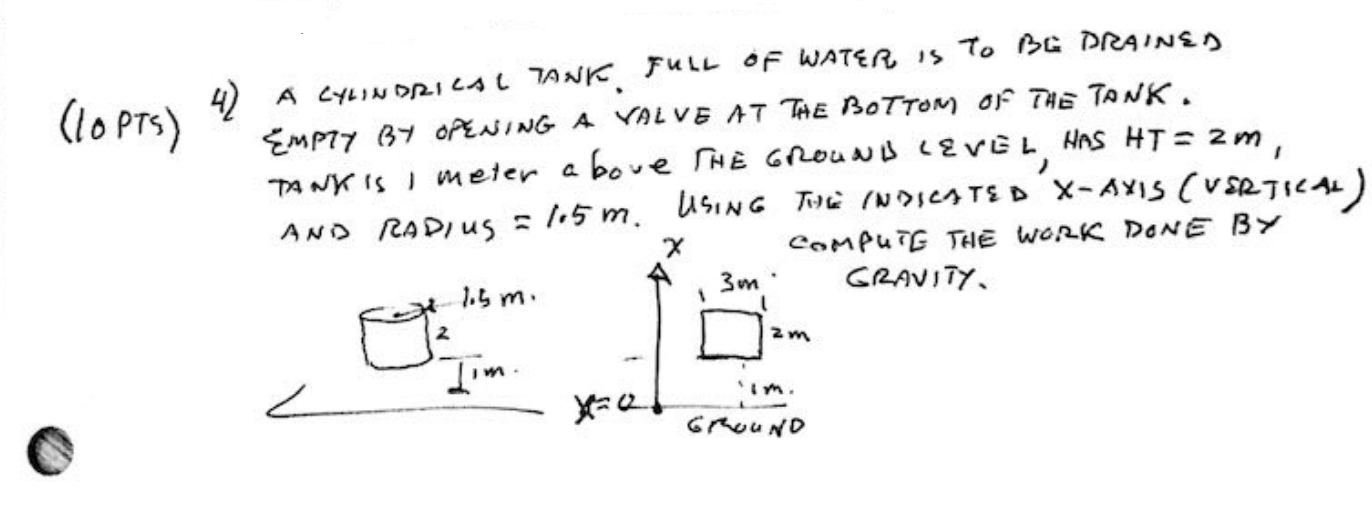 (10 PTS) 4) A CYLINDRICAL TANK, FULL OF WATER IS TO BE DRAINED
EMPTY BY OPENING A VALVE AT THE BOTTOM OF THE TANK.
TANK IS 1 meter above THE GROUND LEVEL, HAS HT = 2m,
AND RADIUS = 1.5 m. USING THE INDICATED X-AXIS (VERTICAL)
COMPUTE THE WORK DONE BY
GRAVITY.
1.5 m.
2
1m.
X
3m
2m
1m.
X=0
GROUND